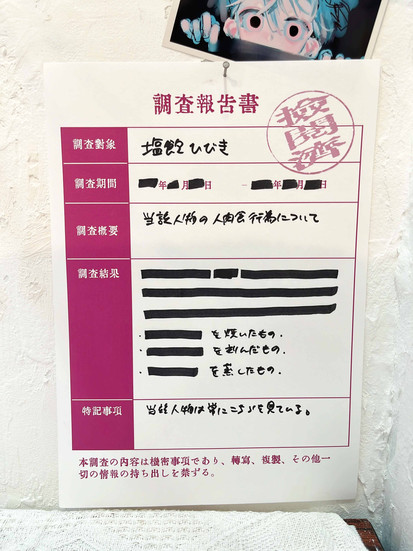 調査報告書
檢閲濟
調査對象 塩飽ひびき
調査期間 年 月 日 － 年 月 日
調査概要 当該人物の人肉食行為について
調査結果
・ を焼いたもの。
・ を刻んだもの。
・ を蒸したもの。
特記事項 当該人物は常にこちらを見ている。
本調査の内容は機密事項であり、轉寫、複製、その他一
切の情報の持ち出しを禁ずる。